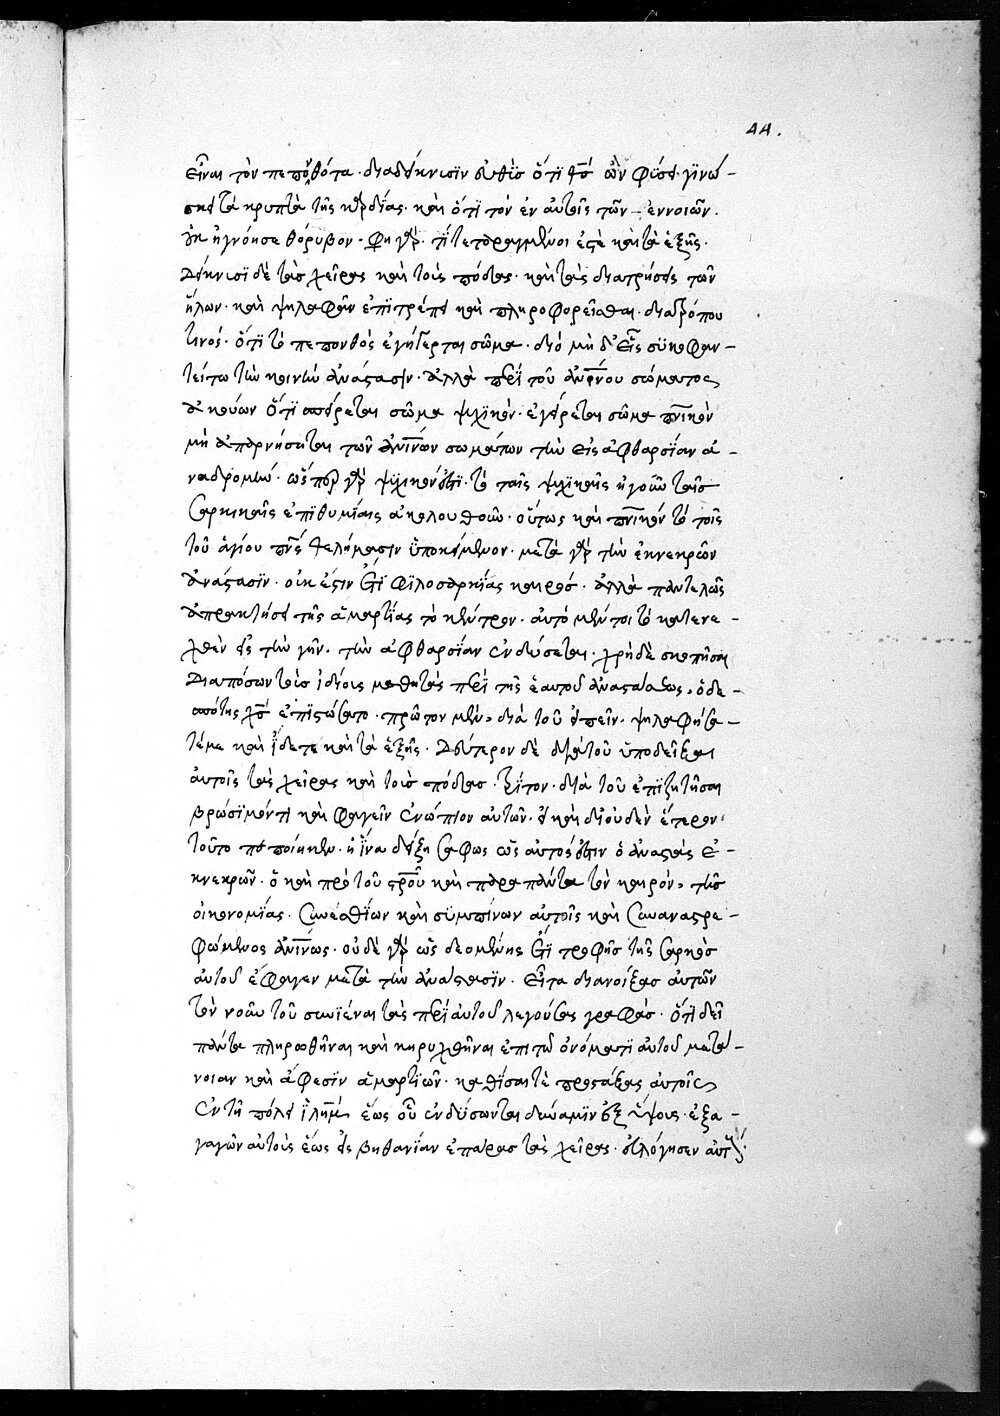 44.
εἶναι τὸν πεπονθότα· διαδείκνυσϊν εὐθϋς ὅτϊ θσ̅ ὢν φύσει· γϊνώ-
σκει τὰ κρυπτὰ τῆς καρδίας· καὶ ὅτϊ τὸν ἐν αὐτοῖς τῶν ἐννοιῶν·
οὐκ ἠγνόησε θόρυβον· φη γὰρ· τί τεταραγμένοι ἐστὲ καὶ τὰ ἑξῆς·
δείκνυσϊ δὲ τὰσ χεῖρας καὶ τοὺς πόδας· καὶ τὰς διατρήσεις τῶν
ἥλων· καὶ ψηλαφᾶν ἐπϊτρέπει καὶ πληροφορεῖσθαι· διὰ τρόπου
τινός· ὅτϊ τὸ πεπονθὸς ἐγήγερται σῶμα· διὸ μὴ δ' εἷς σϋκοφαν-
τείτω τὴν κοινὴν ἀνάστασϊν· ἀλλὰ περὶ τοῦ ἀνθρωπίνου σώματος
ἀκούων ὅτϊ σπείρεται σῶμα ψυχϊκὸν· ἐγείρεται σῶμα πνϊκὸν
μὴ ἀπαρνήσηται τῶν ἀνίνων σωμάτων τὴν εἰς ἀφθαρσίαν ἀ-
ναδρομήν· ὥσπερ γὰρ ψϋχικόν ἐστϊ· τὸ ταῖς ψυχϊκαῖς ἤγουν ταῖς
σαρκικαῖς ἐπϊθυμίαις ἀκολουθοῦν· οὕτως καὶ πνϊκόν τὸ τοῖς
τοῦ ἁγίου πνς θελήμασιν ὑποκείμενον· μετὰ γὰρ τὴν ἐκ νεκρῶν
ἀνάστασϊν· οὐκ ἔστιν ἔτϊ φϊλοσαρκίας καιρός· ἀλλὰ παντελῶς
ἀπρακτήσει τῆς ἁμαρτίας τὸ κέντρον· αὐτὸ μέντοι τὸ κατενε-
χθὲν εἰς τὴν γῆν· τὴν ἀφθαρσίαν ἐνδύσεται· χρὴ δὲ σκοπῆσαι
διαπόσων τοῖσ ἰδίοις μαθηταῖς περὶ τῆς ἑαυτοῦ ἀναστάσεως, ὁ δε-
σπότης χσ̅ ἐπϊστώσατο· πρῶτον μὲν, διὰ τοῦ εἰπεῖν· ψηλαφήσα-
τέ με καὶ ἴδετε καὶ τὰ ἑξῆς· δεύτερον δὲ διὰ τοῦ ὑποδεῖξαι
αὐτοῖς τὰς χεῖρας καὶ τοὺσ πόδασ· τρίτον· διὰ τοῦ ἐπϊζητῆσαι
βρώσϊμόν τι καὶ φαγεῖν ἐνώπιον αὐτῶν· εἰ καὶ δι' οὐδὲν ἕτερον·
τοῦτο πεποίηκεν· ἢ ἵνα δείξη σαφως ὡς αὐτός ἐστιν ὁ ἀναστὰς ἐ-
κ νεκρῶν· ὁ καὶ πρὸ τοῦ σρου̅ καὶ παρα πάντα τὸν καιρόν, τῆς
οἰκονομίας· συνεσθίων καὶ σϋμπίνων αὐτοῖς καὶ συναναστρε-
φόμενος ἀνίνως· οὐδὲ γὰρ ὡς δεομένης ἔτϊ τροφῆς τῆς σαρκὸς
αὐτοῦ ἔφαγεν μετὰ τὴν ἀνάστασϊν· εἶτα διανοίξας αὐτῶν
τὸν νοῦν τοῦ συνϊέναι τὰς περὶ αὐτοῦ λεγούσας γραφάς· ὅτϊ δεῖ
πάντα πληρωθῆναι καὶ κηρυχθῆναι ἐπι τῷ ὀνόματϊ αὐτοῦ μετά-
νοιαν καὶ ἄφεσϊν ἁμαρτϊῶν· καθίσαι τὲ προστάξας αὐτοῖς
ἐν τῇ πόλει ϊλημ ἕως οὗ ἐνδύσωνται δύναμϊν ἐξ ὕψους· ἐξα-
γαγὼν αὐτοὺς ἕως εἰς βηθανίαν ἐπάρασ τὰς χεῖρας· εὐλόγησεν αὐτούς·